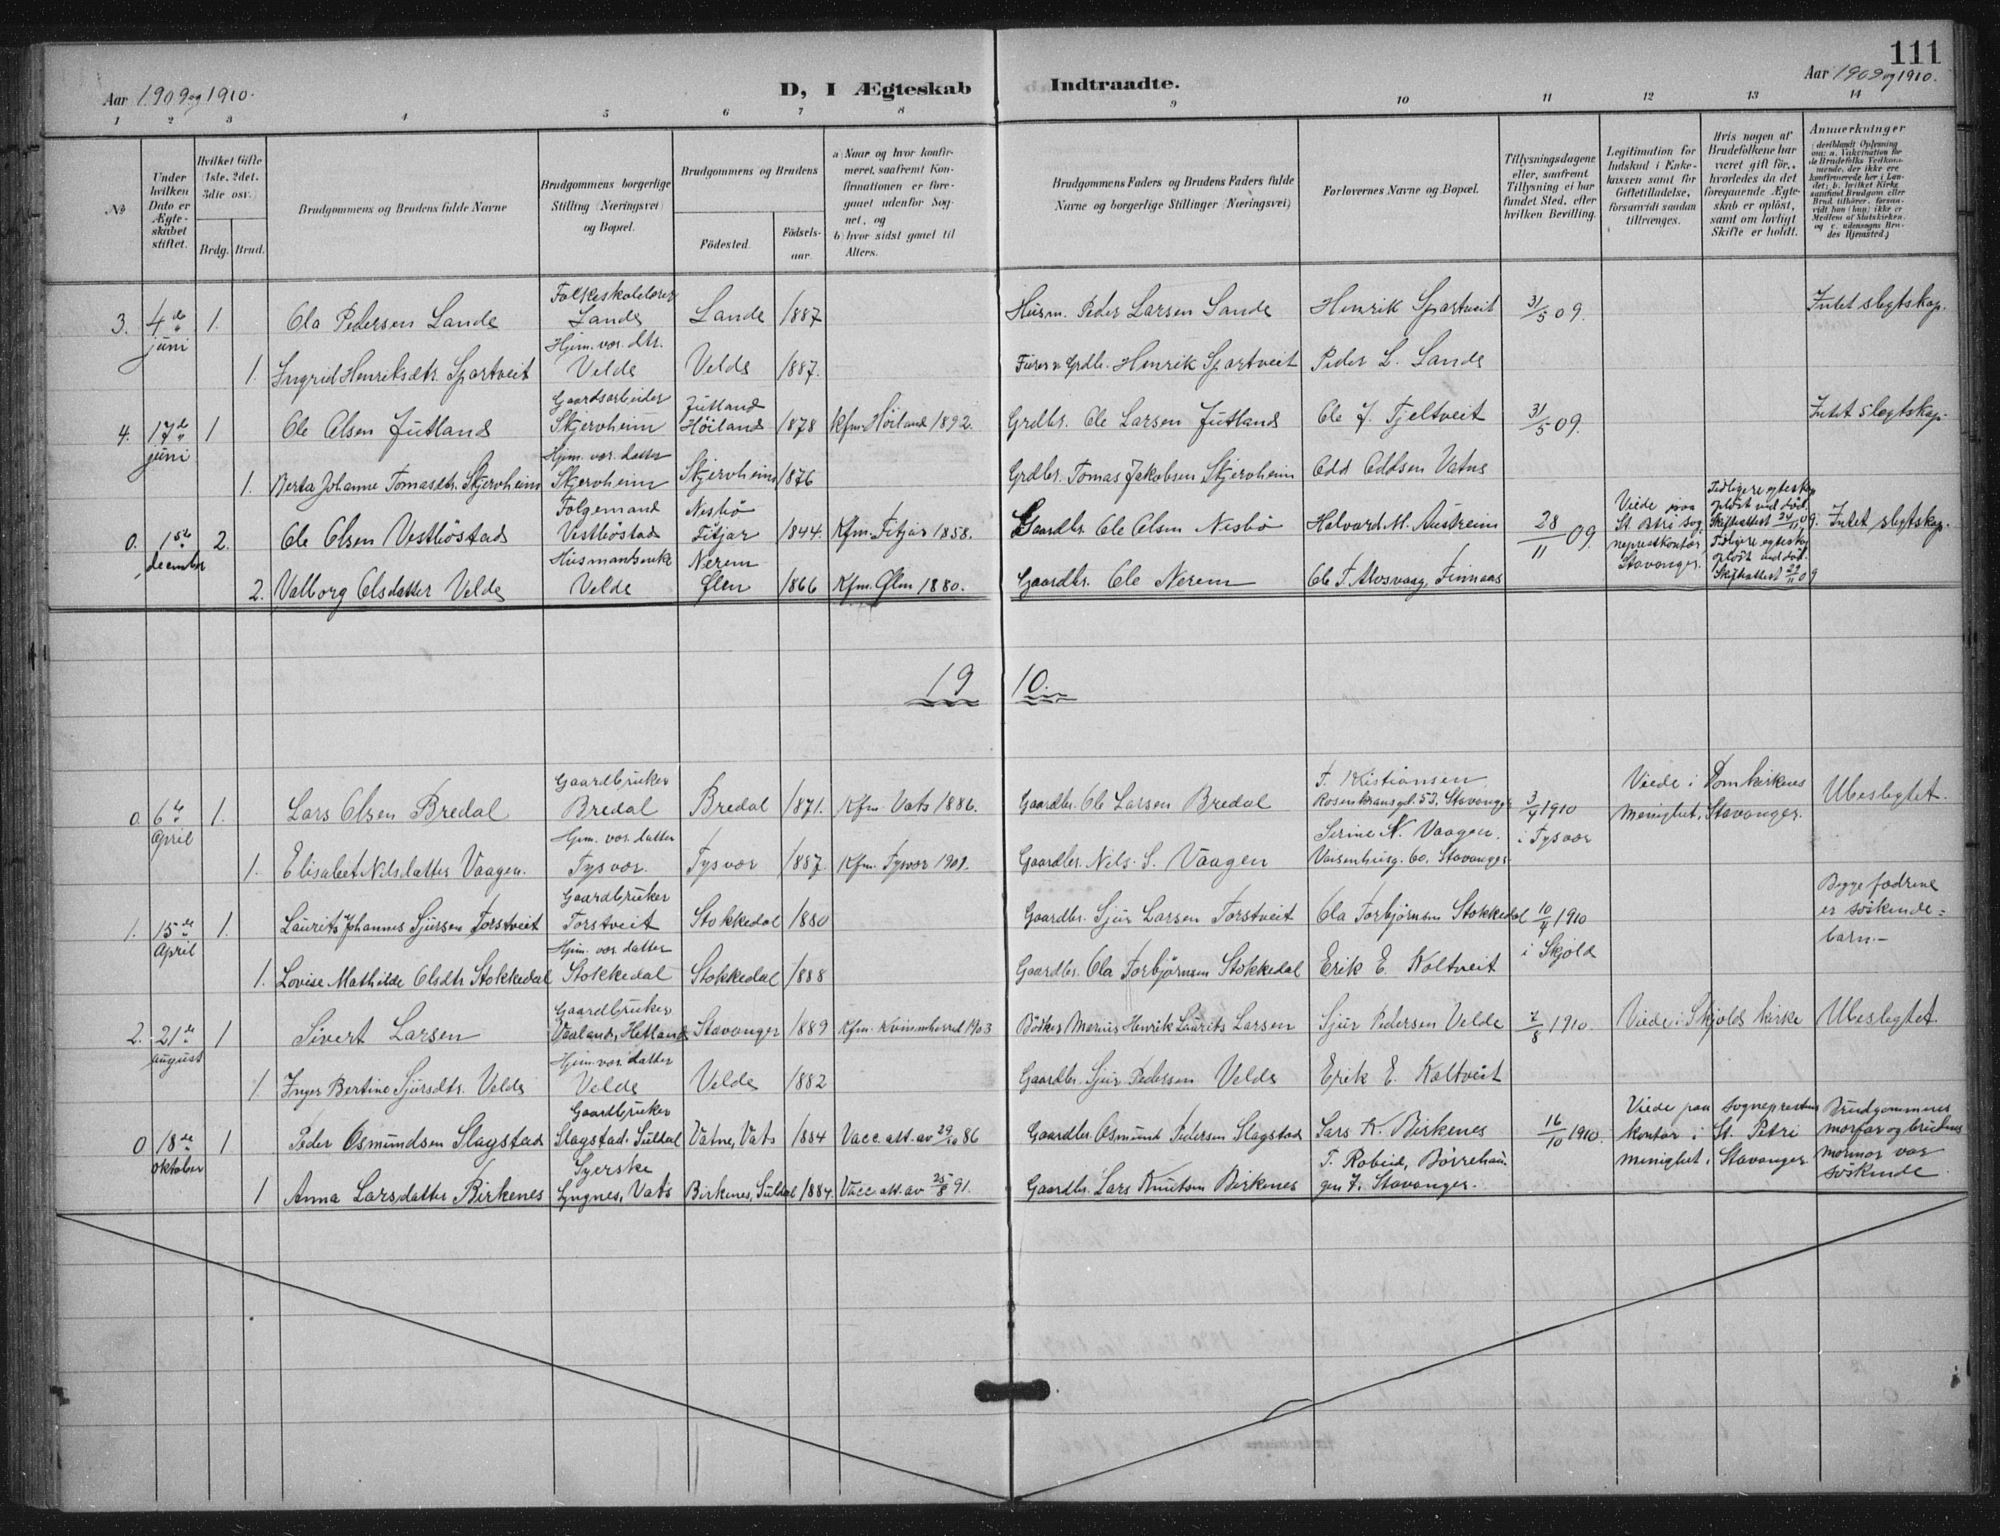 111
Aar 1909 og 1910.
D, I Ægteskab Indtraadte.
Aar 1909 og 1910.
1 2 3 4 5 6 7 8 9 10 11 12 13 14
No
Under hvilken Dato er Ægteskabet stiftet.
Hvilket Gifte 1ste, 2det, 3die osv.
Brdg. Brud.
Brudgommens og Brudens fulde Navne
Brudgommens borgerlige Stilling (Næringsvei) og Bopæl.
Brudgommens og Brudens
Fødested.
Fødselsaar.
a) Naar og hvor konfirmeret, saafremt Konfirmationen er foregaaet udenfor Sognet, og
b) hvor sidst gaaet til Alters.
Brudgommens Faders og Brudens Faders fulde Navne og borgerlige Stillinger (Næringsvei)
Forlovernes Navne og Bopæl.
Tillysningsdagene eller, saafremt Tillysning ei har fundet Sted, efter hvilken Bevilling.
Legitimation for Indskud i Enkekassen samt for Giftetilladelse, forsaavidt saadan tiltrænges.
Hvis nogen af Brudefolkene har været gift før, hvorledes da det foregaaende Ægteskab er opløst, samt om lovligt Skifte er holdt.
Anmerkninger
(deriblandt Oplysning om: a. Vakcination for de Brudefolks Vedkommende, der ikke ere konfirmerede her i Landet; b. hvilket Kirkesamfund Brudgom eller Brud tilhører, forsaavidt han (hun) ikke er Medlem af Statskirken og c. udensogns Brudes Hjemsted.)
3. 4de juni 1. Ola Pedersen Sande Folkeskolelærer Sande Sande 1887 Husm. Peder Larsen Sande Henrik Spartveit 31/5 09. Intet slegtskap.
1. Ingrid Henriksdtr. Spartveit Hjm. vær. dtr. Velde Velde 1887. Furer & Grdbr. Henrik Spartveit Peder L. Sande
4. 17de juni 1 Ole Olsen Jutland Gaardsarbeider Skjervheim Jutland Höiland 1878 Kfm. Höiland 1892. Grdbr. Ole Larsen Jutland Ole J. Fjeltveit 31/5 09. Intet slegtskap.
1. Berta Johanne Tomasdtr. Skjervheim Hjm. vær. datter Skjervheim Skjervheim 1876 Grdbr. Tomas Jakobsen Skjervheim Odd Oddsen Vatne
0. 1ste december 2. Ole Olsen Vestböstad Folgemand Vestböstad Nesbö Fitjar 1844. Kfm. Fitjar 1858. Gaardbr. Ole Olsen Nesbö Halvard M. Austreim 28/11 09. Viede paa St. Petri sogneprestkontor, Stavanger. Tidligere egteskap oplöst ved död. Skifteattest 24/11 09. Intet slegtskap.
2. Valborg Olsdatter Velde Husmandsenke Velde Nerem Ølen 1866 Kfm. Ølen 1880. Gaardbr. Ole Nerem Ole T. Mosvaag, Finnaas Tidligere egteskap oplöst ved död. Skifteattest 29/11 09
1910.
0 6te April 1. Lars Olsen Bredal Gaardbruker Bredal Bredal 1871. Kfm. Vats 1886. Gaardbr. Ole Larsen Bredal T. Kristiansen, Rosenkransgt. 53, Stavanger 3/4 1910 i Tysvær Viede i Domkirkens menighet, Stavanger. Ubeslegtet.
1. Elisabet Nilsdatter Vaagen. Hjm. vær. datter Tysvær. Tysvær 1887. Kfm. Tysvær 1901. Gaardbr. Nils S. Vaagen Serine N. Vaagen. Vaisenhusg. 60, Stavanger.
1. 15de April 1. Laurits Johannes Sjursen Torstveit Gaardbruker Torstveit Stokkedal 1880 Gaardbr. Sjur Larsen Torstveit Ola Torbjørnsen Stokkedal 10/4 1910 i Skjold Begge fædrene er søskendebarn.-
1. Lovise Mathilde Olsdtr Stokkedal Hjm. vær. datter Stokkedal Stokkedal 1888 Gaardbr. Ola Torbjørnsen Stokkedal Erik E. Koltveit
2. 21de august 1 Sivert Larsen Gaardbruker Vaaland, Hetland Stavanger 1889 Kfm. Kvinnherred 1903 Bödker Marius Henrik Laurits Larsen Sjur Pedersen Velde 7/8 1910. Viede i Skjolds kirke Ubeslegtet.
1 Inger Bertine Sjursdtr. Velde Hjm. vær. datter Velde Velde 1882 Gaardbr. Sjur Pedersen Velde Erik E. Koltveit
0 18de oktober 1 Peder Osmundsen Slagstad Gaardbruker Slagstad, Suldal Vatne, Vats 1884 Vacc. att. av 29/10 86 Gaardbr. Osmund Pedersen Slagstad Lars K. Birkenes 16/10 1910. Viede paa sogneprestens kontor i St. Petri menighet, Stavanger Brudgommens morfar og brudens mormor var søskende
1 Anna Larsdatter Birkenes Syerske Lyngnes, Vats Birkenes, Suldal 1884. Vacc. att. av 25/8 91. Gaardbr. Lars Knutsen Birkenes T. Robeid, Børrehaugen 7. Stavanger.